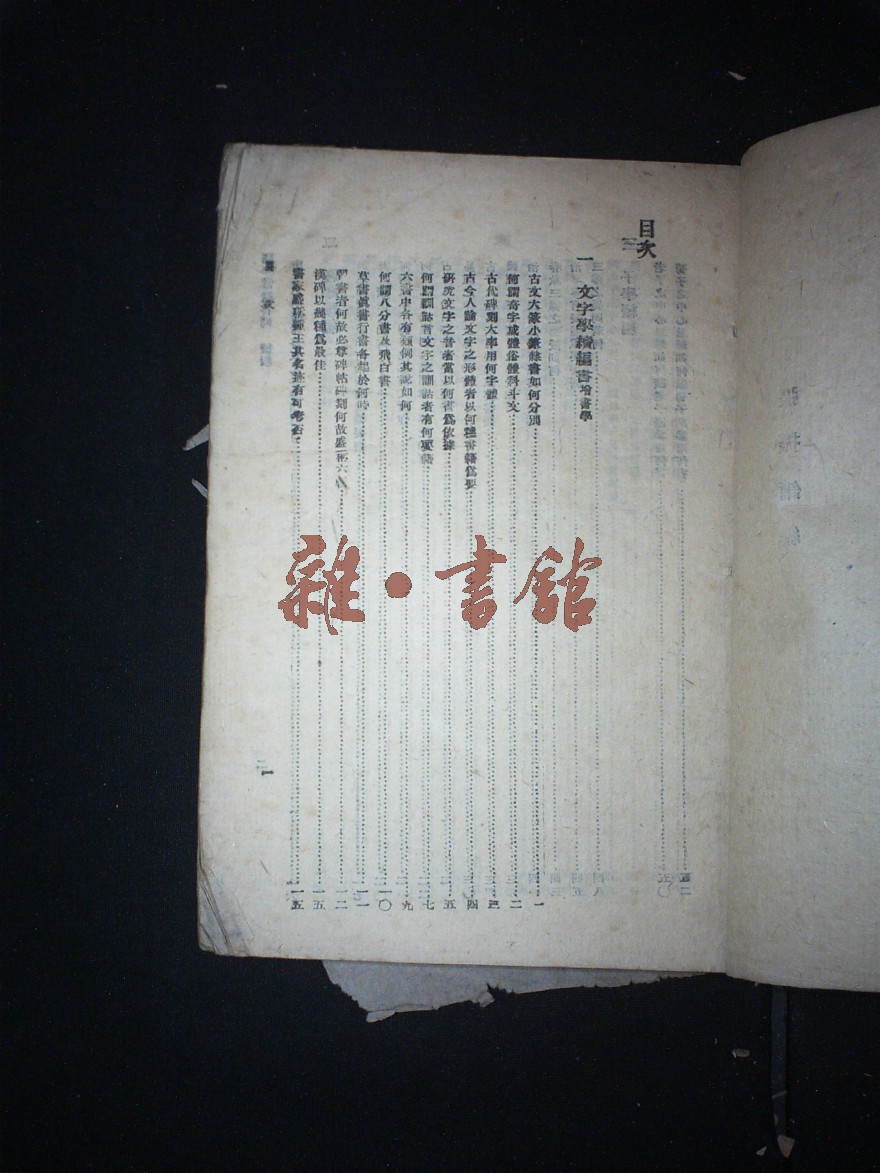 目次
一 文字學續編 增書學
古文大篆小篆隸書如何分別 一
何謂奇字或體俗體科斗文 二
古代碑刻大率用何字體 三
古今人論文字之形體者以何種書籍爲要 四
研究文字之音者當以何書爲依據 五
何謂訓詁言文字之訓詁者有何要籍 七
六書中各有類例其說如何 九
何謂八分書及飛白書 一〇
草書眞書行書各起於何時 一一
習書者何故必尊碑帖碑刻何故盛於六 一二
漢碑以幾種爲最佳 一五
書家盛稱二王其名蹟有可考否 一五
一
雜·書館